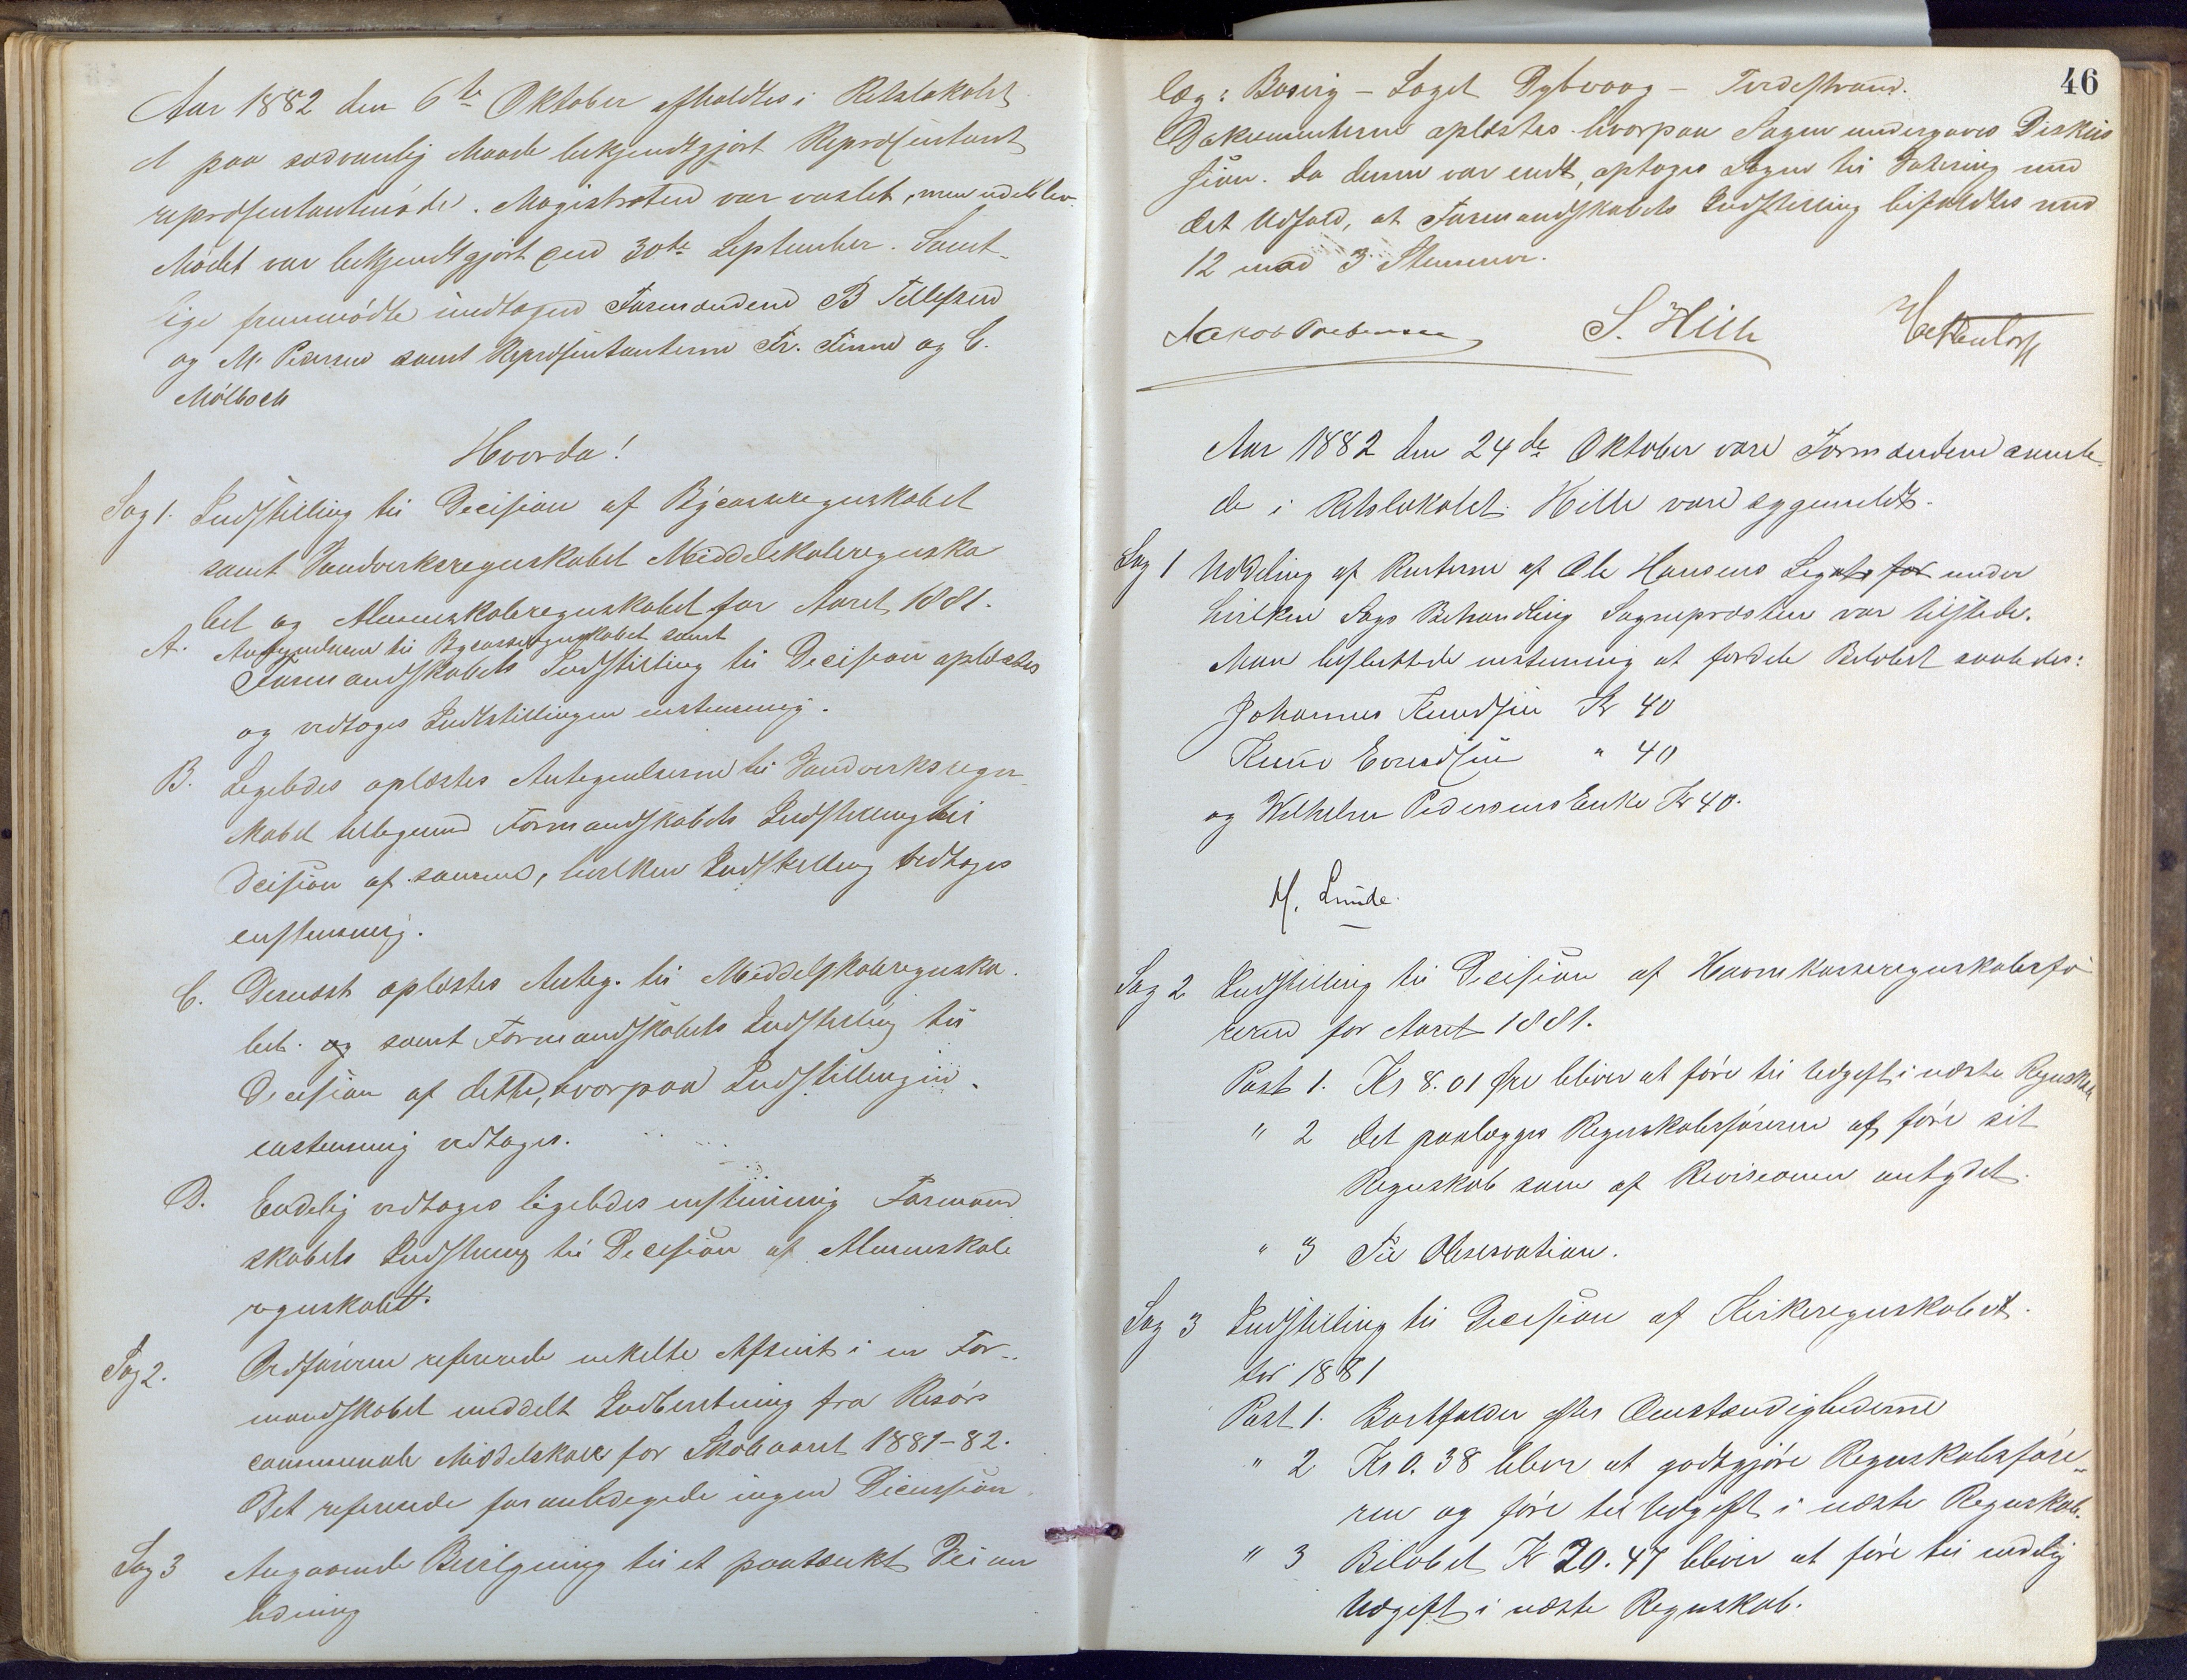 Aar 1882 den 6te Oktober afholdtes i Retslokalet
et paa sædvanlig Maade bekjendtgjort Repræsentant
repræsentantmøde. Magistraten var varslet, men udeblev.
Mødet var bekjendtgjort den 30te September. Samt-
lige fremmødte undtagen Formændene B Tellefsen
og M. Pedersen samt Repræsentanterne Fr. Finne og C.
Mølbach
Hvorda!
Sag 1. Indstilling til Decision af Bycasseregnskabet
samt Vandverksregnskabet Middelskoleregnska
bet og Almueskoleregnskabet for Aaret 1881.
A. Antegnelserne til Bycasseregnskabet samt
Formandskabets Indstilling til Decision oplæstes
og vedtoges Indstillingen enstemmig.
B. Ligeledes oplæstes Antegnelserne til Vandverksregn
skabet tilligemed Formandskabets Indstilling til
Decision af samme, hvilken Indstilling vedtoges
enstemmig.
C. Dernæst oplæstes Anteg. til Middelskoleregnska
bet og samt Formandskabets Indstilling til
Decision af dette, hvorpaa Indstillingen
enstemmig vedtoges.
D. Endelig vedtoges ligeledes enstemmig Formand
skabets Indstilling til Decision af Almueskole
regnskabet.
Sag 2. Ordføreren refererede enkelte Afsnit i en For-
mandskabet meddelt Indberetning fra Risørs
communale Middelskole for Skoleaaret 1881-82.
Det refererede foranledigede ingen Discussion.
Sag 3 Angaaende Bevilgning til et paatænkt Vei an
lædning
46
læg: Bosvig - Laget Dybvaag - Tvedestrand.
Dokumenterne oplæstes hvorpaa Sagen undergaves Diskus
sion. Da denne var endt, optoges Sagen til Votering med
det Udfald, at Formandskabets Indstilling bifaldtes med
12 mod 3 Stemmer.
S. Hille
Aar 1882 den 24de Oktober vare Formændene samle-
de i Retslokalet. Hille vare sygemeldt.
Sag 1 Uddeling af Renterne af Ole Hansens Legat for under
hvilken Sags Behandling Sognepræsten var tilstede.
Man besluttede enstemmig at fordele Beløbet saaledes:
Johannes Knudsen Kr 40
Knud Evensen " 40
og Wilhelm Pedersens Enke Kr 40.
H. Lunde.
Sag 2 Indstilling til Decision af Havnekasseregnskabsfø
reren for Aaret 1881.
Post 1. Kr 8.01 Øre bliver at føre til Udgift i næste Regnskab
" 2 Det paalægges Regnskabsføreren at føre sit
Regnskab som af Revisionen antydet.
" 3 Til Observation.
Sag 3 Indstilling til Decision af Kirkeregnskabet
for 1881
Post 1. Bortfalder efter Omstændighederne
" 2 Kr 0.38 bliver at godtgjøre Regnskabsføre-
ren og føre til Udgift i næste Regnskab.
" 3 Beløbet Kr 20.47 bliver at føre til endelig
Udgift i næste Regnskab.